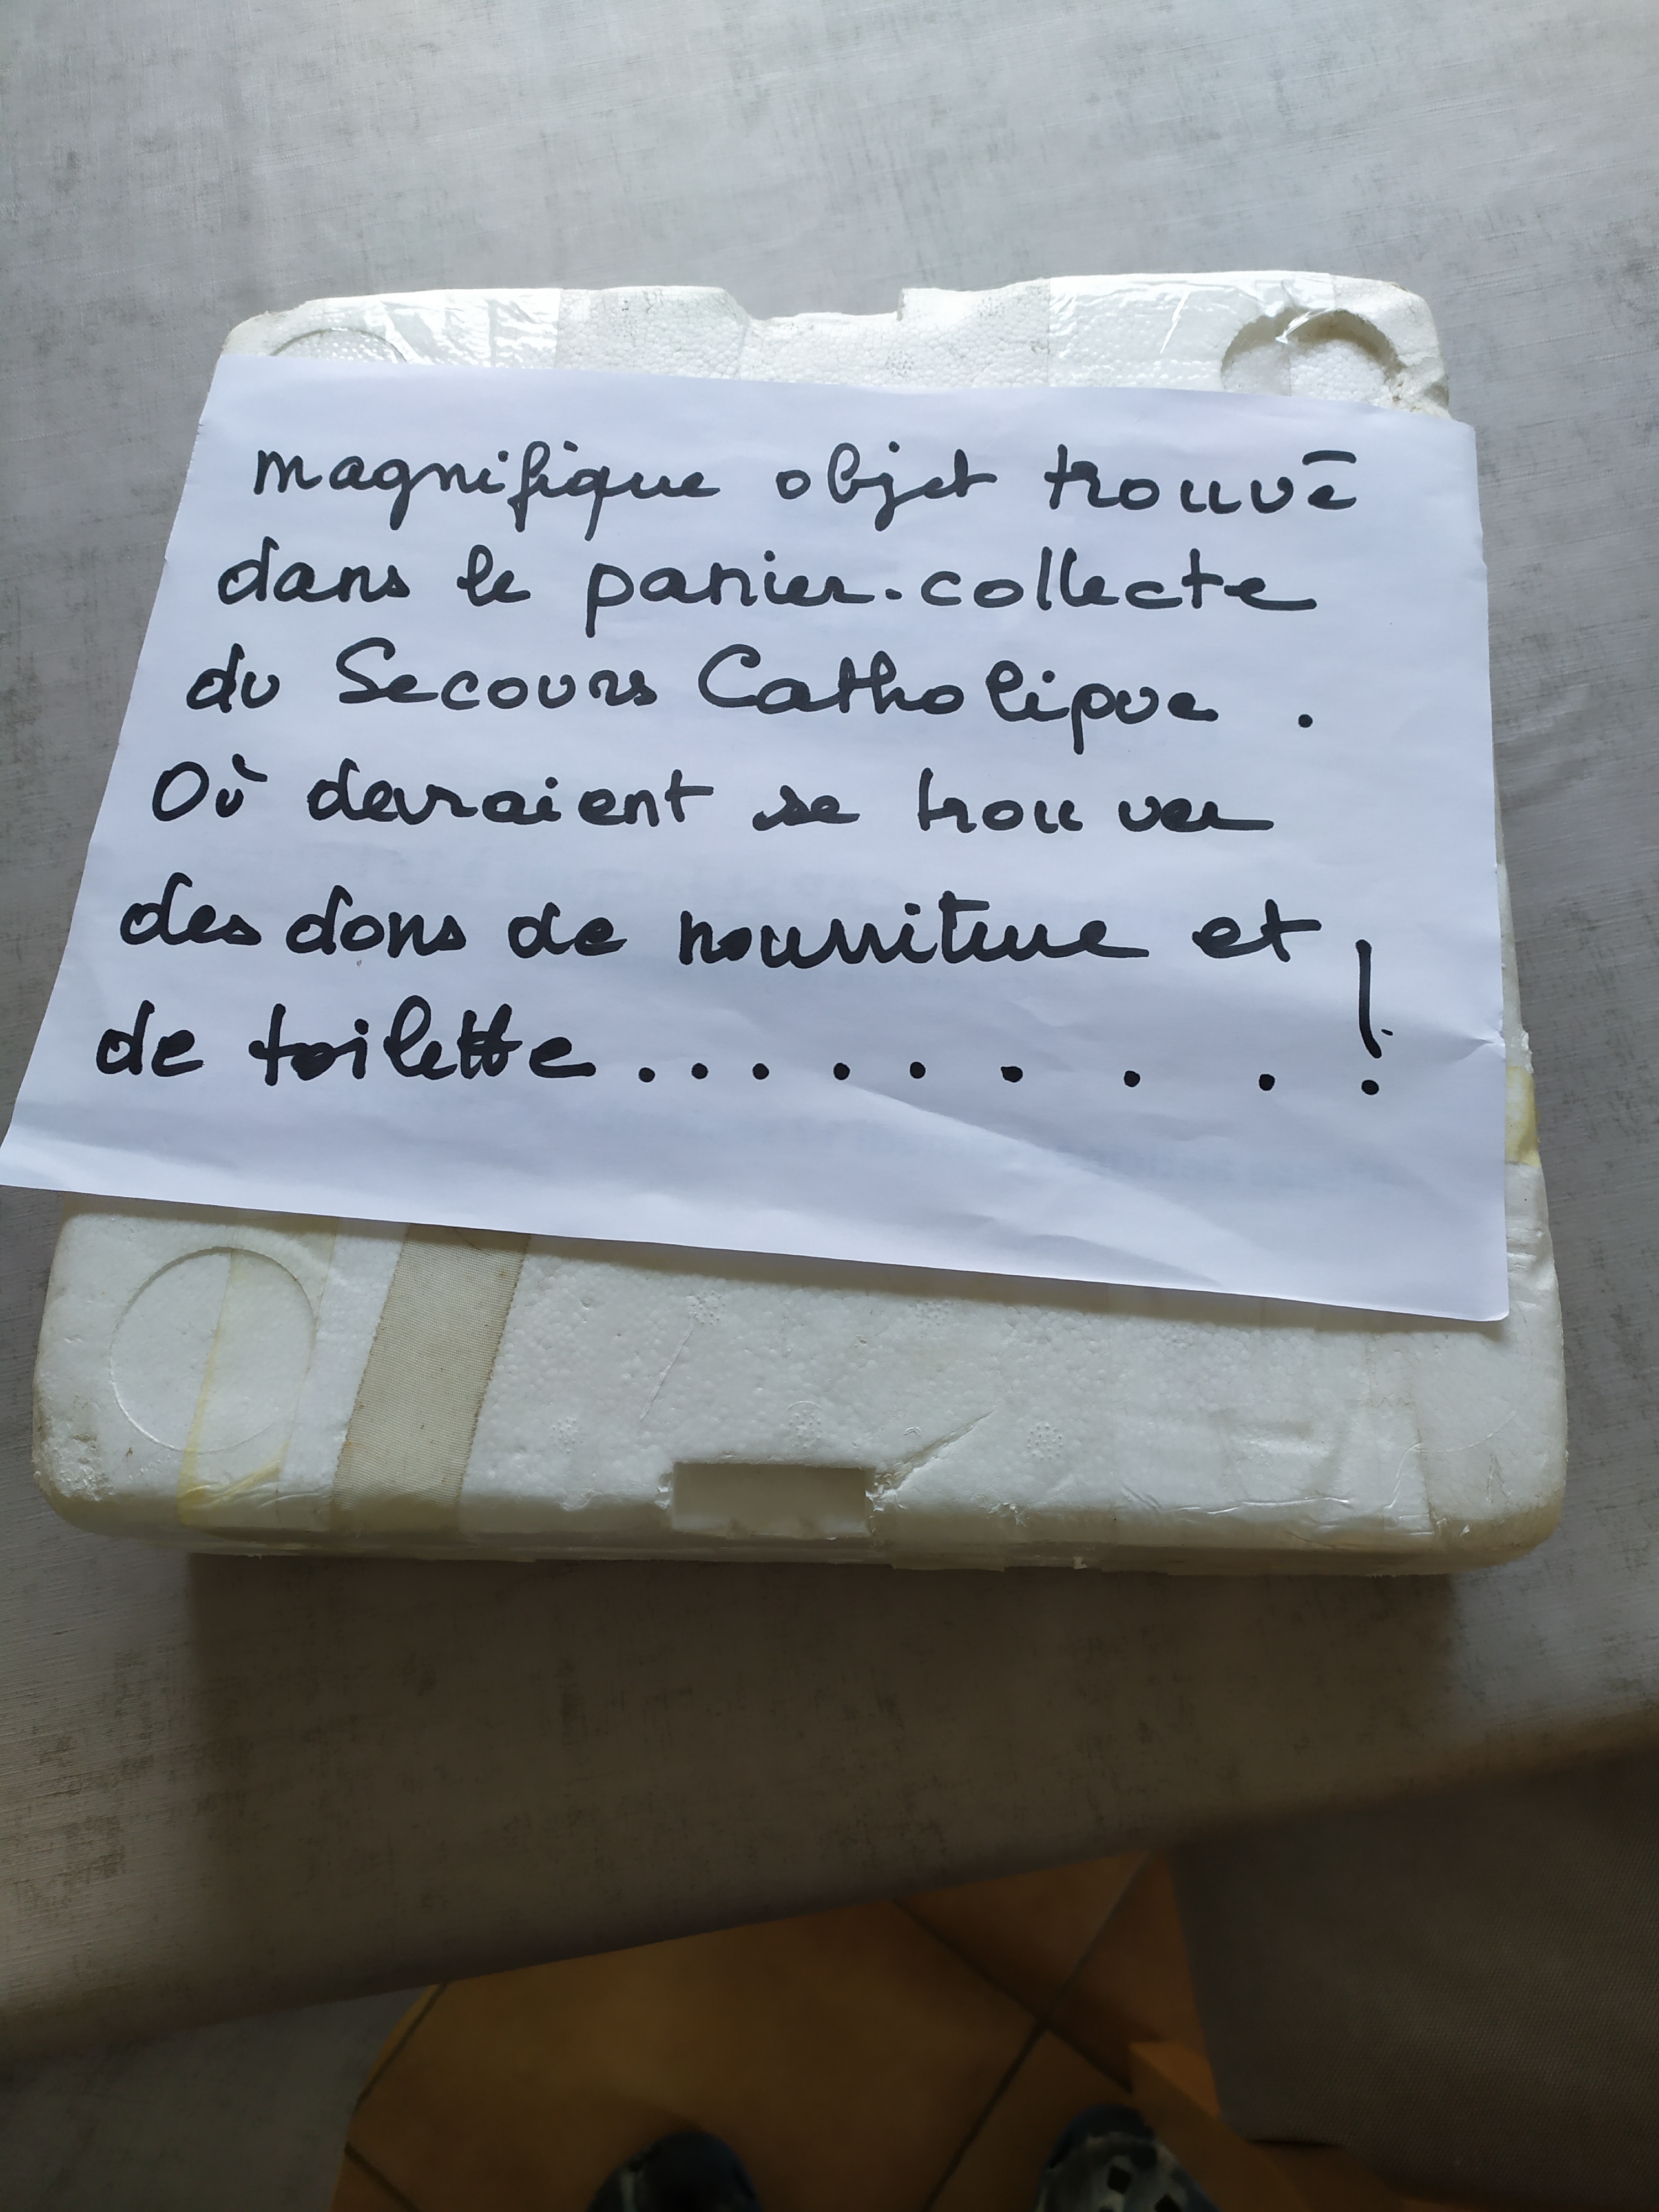 magnifique objet trouvé
dans le panier-collecte
du Secours Catholique .
Où devraient se trouver
des dons de nourriture et
de toilette......... !